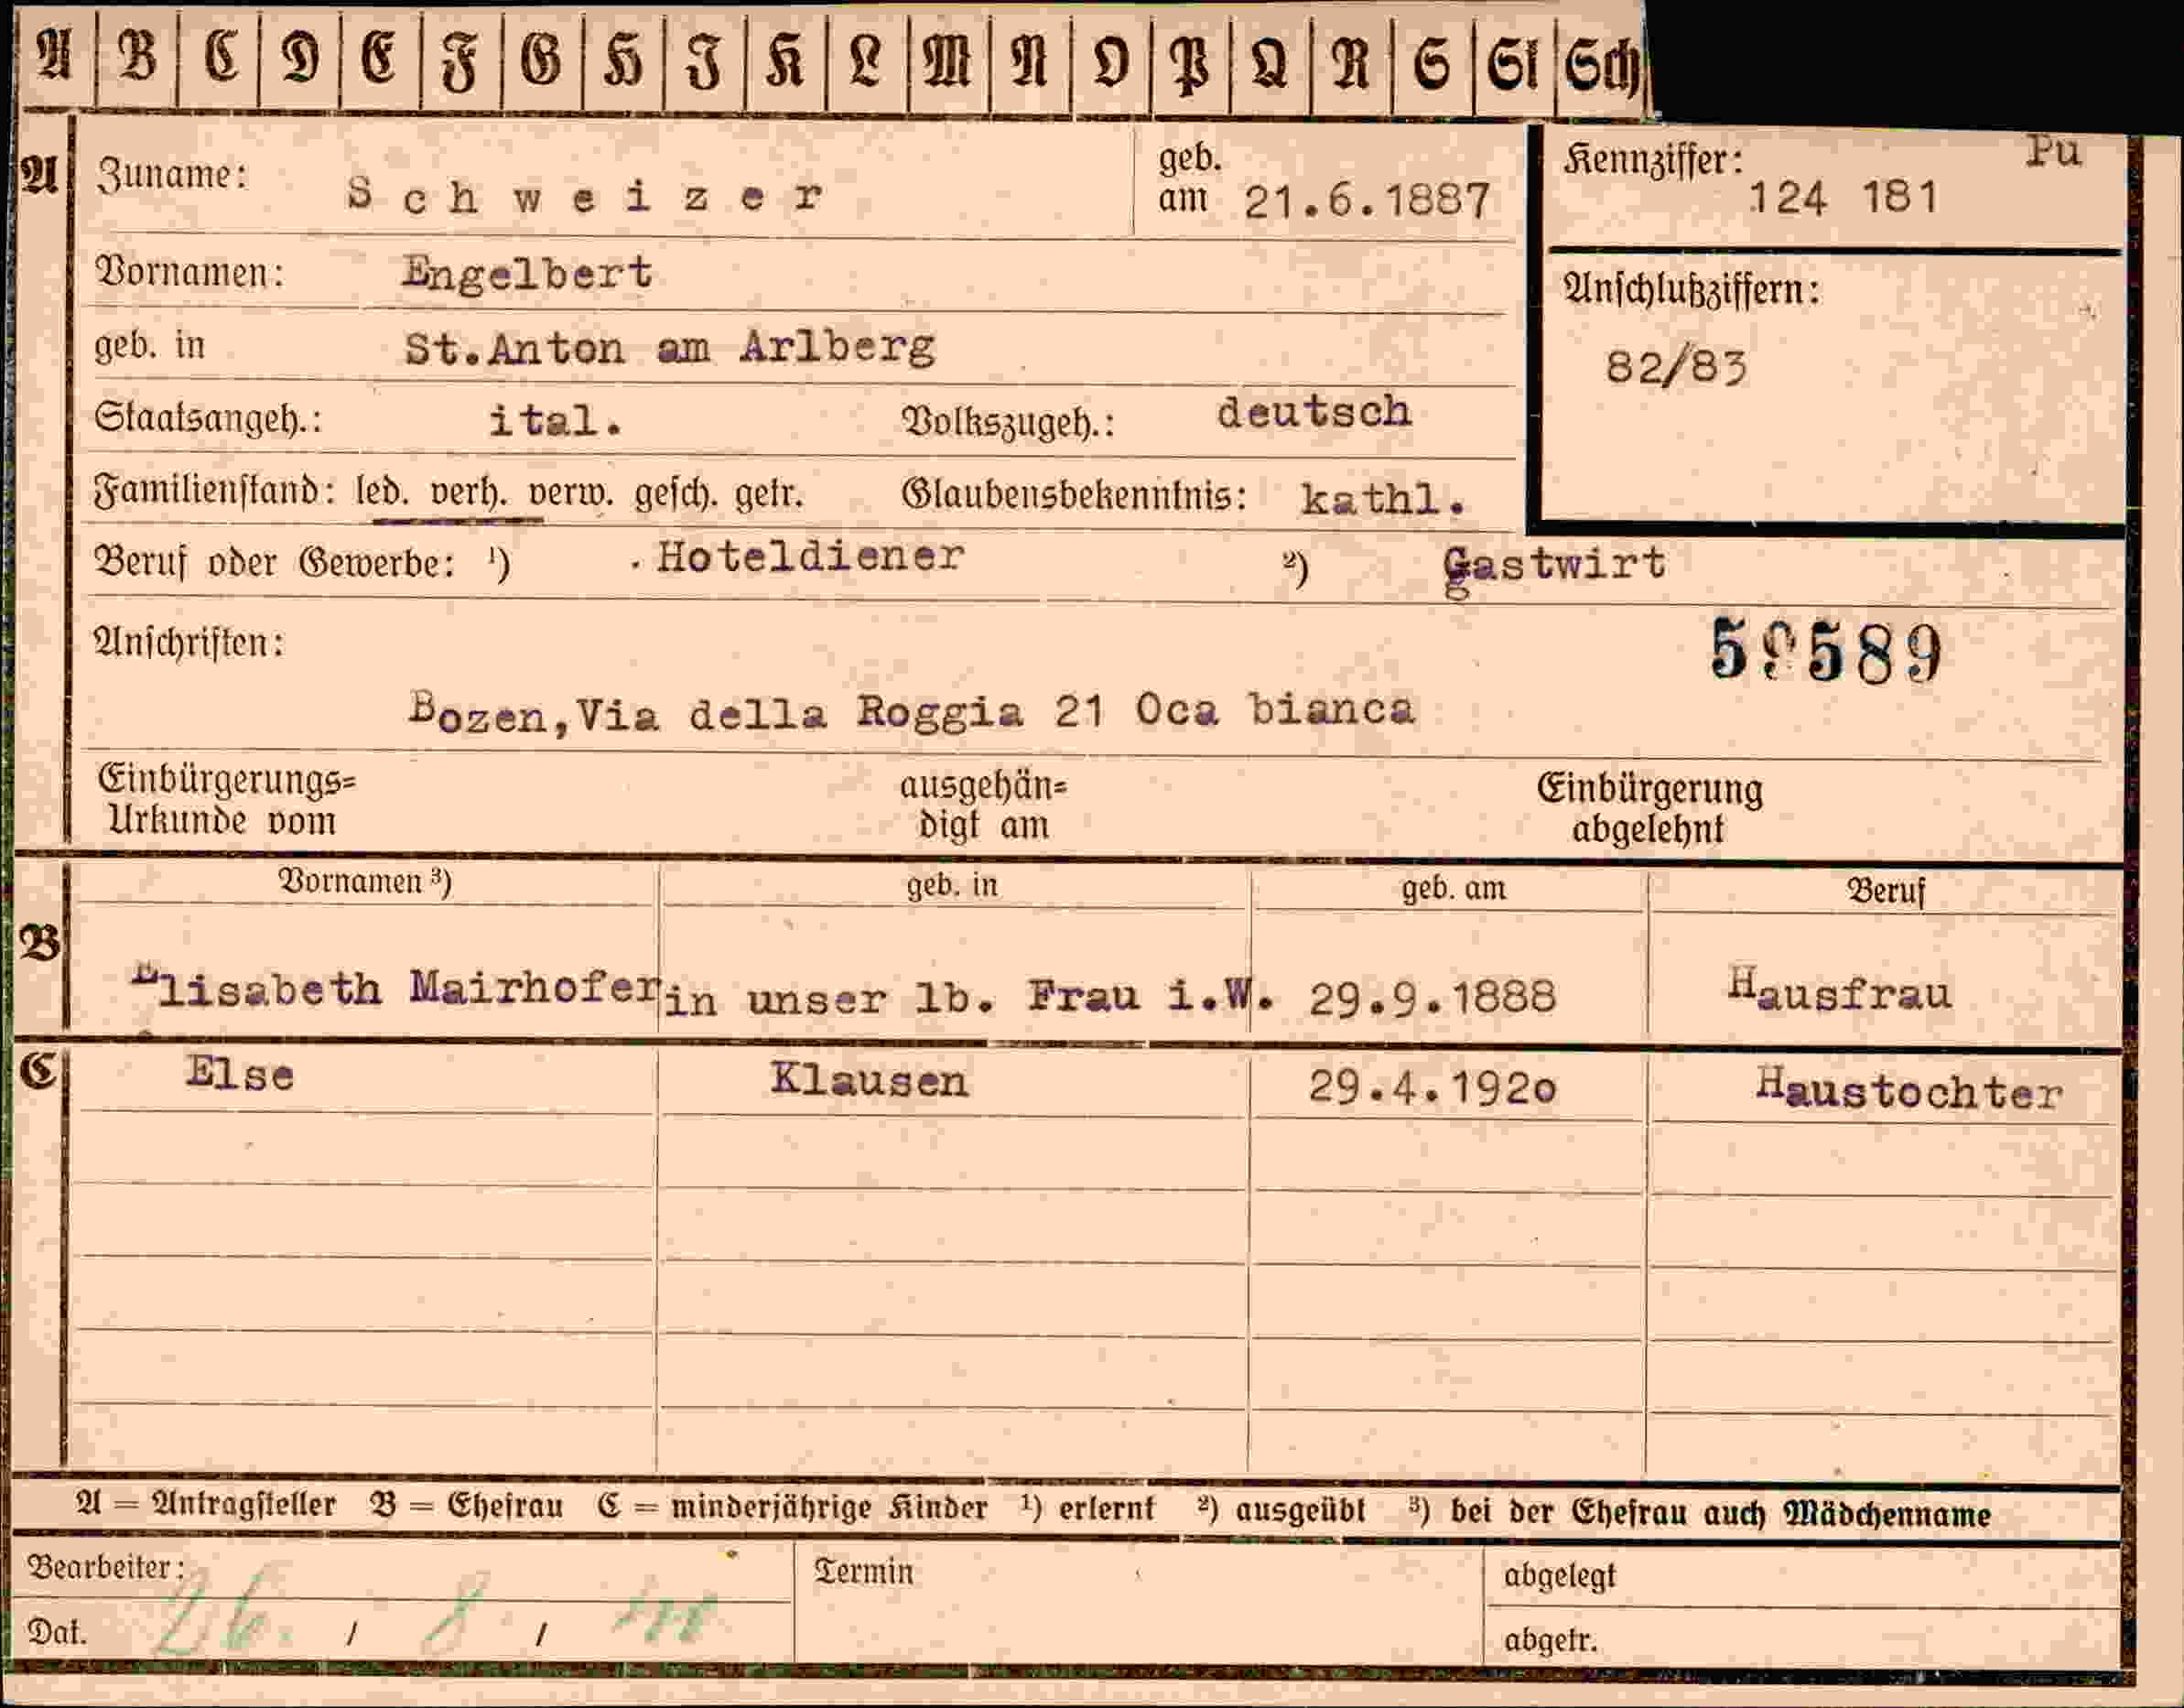 A B C D E F G H I K L M N O P Q R S St Sch
A Zuname: Schweizer geb. am 21.6.1887 Kennziffer: 124 181 Pu
Vornamen: Engelbert Anschlußziffern:
geb. in St.Anton am Arlberg 82/83
Staatsangeh.: ital. Volkszugeh.: deutsch
Familienstand: led. verh. verw. gesch. getr. Glaubensbekenntnis: kathl.
Beruf oder Gewerbe: ¹) Hoteldiener ²) Gastwirt
Anschriften: 59589
Bozen,Via della Roggia 21 Oca bianca
Einbürgerungs= ausgehän= Einbürgerung
Urkunde vom digt am abgelehnt
Vornamen ³) geb. in geb. am Beruf
B
Elisabeth Mairhofer in unser lb. Frau i.W. 29.9.1888 Hausfrau
C Else Klausen 29.4.1920 Haustochter
A = Antragsteller B = Ehefrau C = minderjährige Kinder ¹) erlernt ²) ausgeübt ³) bei der Ehefrau auch Mädchenname
Bearbeiter: Termin abgelegt
Dat. 26. / 8 / abgetr.